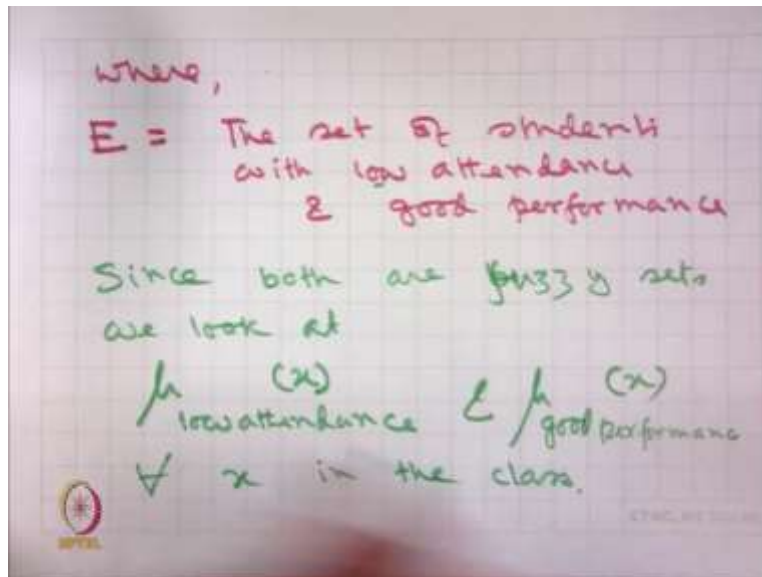 where,
E = The set of students
with low attendance
& good performance
Since both are fuzzy sets
we look at
μ low attendance (x) & μ good performanc (x)
∀ x in the class.
NPTEL